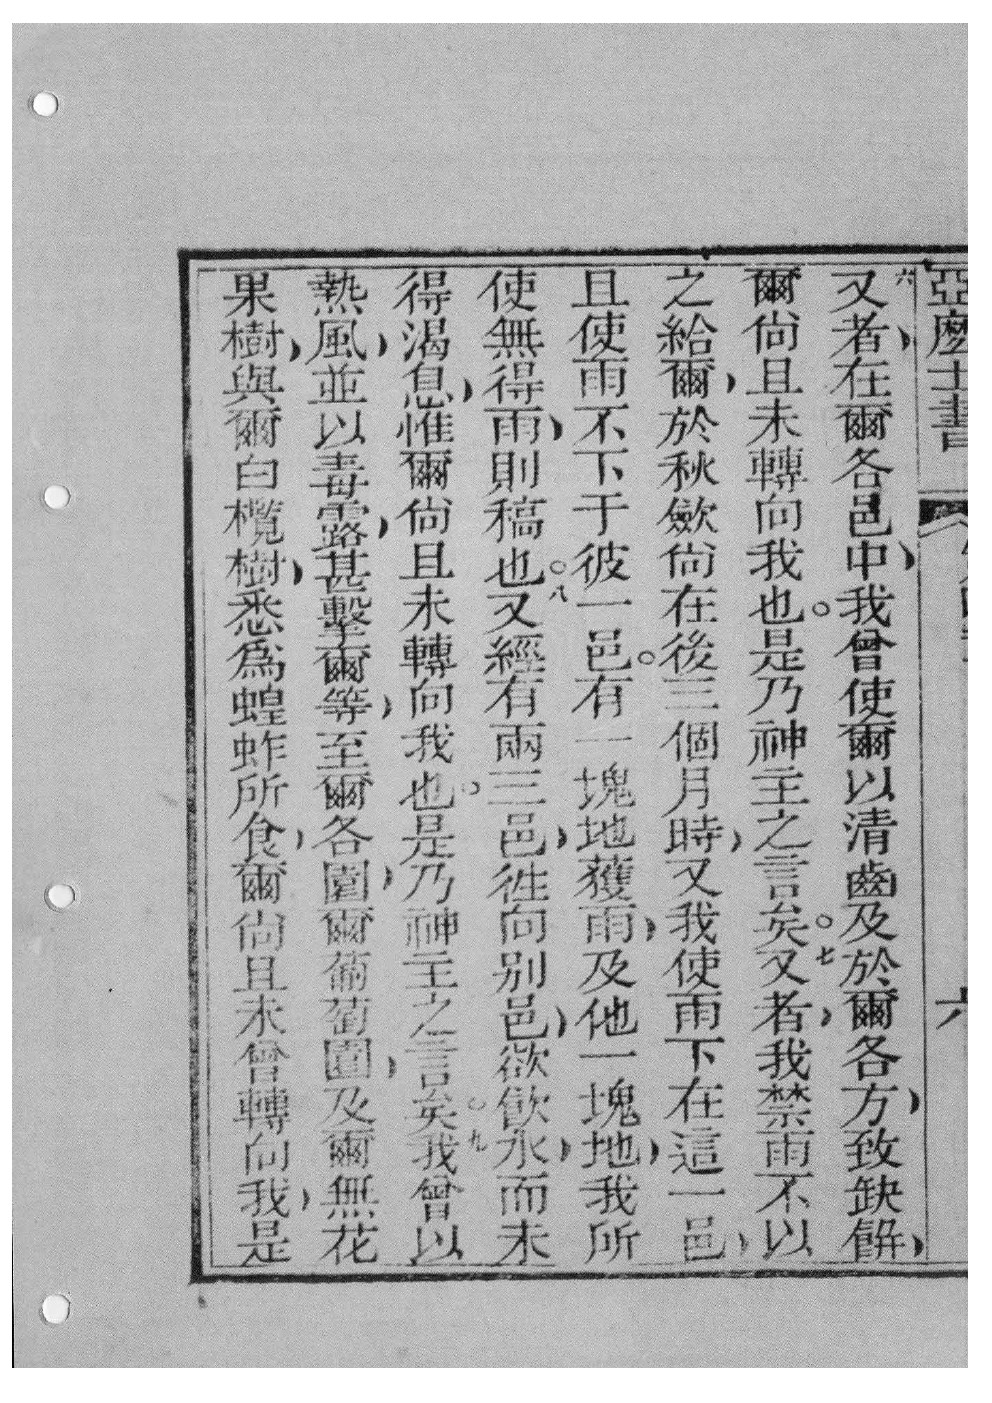 亞麼士書 六
六又者、在爾各邑中、我曾使爾以清齒及於爾各方、致缺餅、
爾尙且未轉向我也。是乃神主之言矣。七又者、我禁雨不以
之給爾、於秋歛尙在後三個月時、又我使雨下在這一邑、
且使雨不下于彼一邑。有一塊地獲雨、及他一塊地、我所
使無得雨、則稿也。八又經有兩三邑、徃向别邑、欲飮水、而未
得渴息、惟爾尙且未轉向我也。是乃神主之言矣。九我曾以
熱風、並以毒露、甚擊爾等、至爾各園、爾葡萄園、及爾無花
果樹、與爾白欖樹、悉爲蝗蚱所食、爾尙且未曾轉向我、是